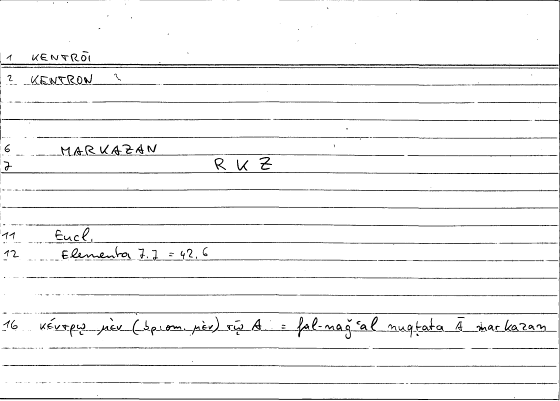 1 KENTRŌI
2 KENTRON 2
6 MARKAZAN
7 R K Z
11 Eucl.
12 Elementa 7.7 = 42.6
16 κέντρῳ μὲν (om. μὲν) τῷ A = fal-naǧʿal nuqṭata Ā markazan